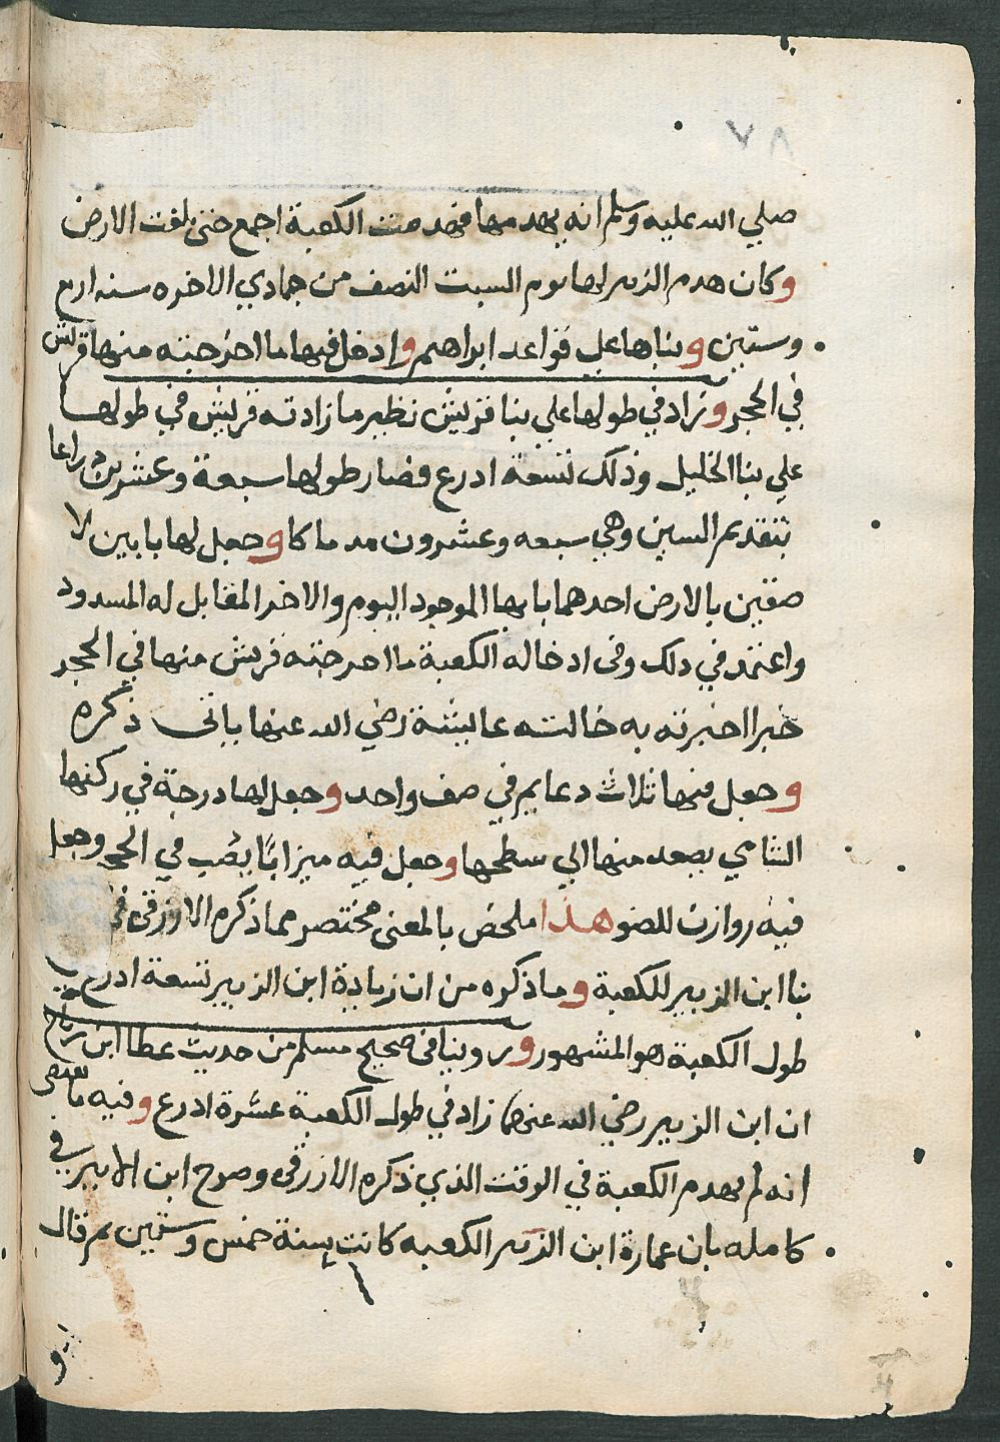 ٧٨
صلي الله عليه وسلم انه يهدمها فهدمت الكعبة اجمع حتى بلغت الارض
وكان هدم الزبير لها يوم السبت النصف من جمادي الاخره سنه اربع
وستين وبناها علي قواعد ابراهيم وادخل فيها ما اخرجته منها قريش
في الحجر وزاد في طولها علي بنا قريش نظير ما زادته قريش في طولها
علي بنا الخليل وذلك تسعة ادرع فصار طولها سبعة وعشرين دراعا
بتقديم السين وهي سبعه وعشرون مدماكا وجعل لها بابين لا
صقين بالارض احدهما بابها الموجود اليوم والاخر المقابل له المسدود
واعتمد في دلك وفى ادخاله الكعبة ما اخرجته قريش منها في الحجر
خبرا اخبرته به خالته عايشة رضي الله عنها ياتى ذكره
وجعل فيها ثلاث دعايم في صف واحد وجعل لها درجة في ركنها
الشامي يصعد منها الي سطحها وجعل فيه ميزابًا يصب في الحجر وجعل
فيه روازن للضو هذا ملخص بالمعنى مختصر مما ذكره الازرقى في
بنا ابن الزبير للكعبة وما ذكره من ان زيادة ابن الزبير تسعة ادرع في
طول الكعبة هو المشهور وروينا فى صحيح مسلم من حديث عطا ابن رباح
ان ابن الزبير رضي الله عنهما زاد في طول الكعبة عشرة ادرع وفيه ما يقتضى
انه لم يهدم الكعبة في الوقت الذي ذكره الازرقى وصرح ابن الاثير في
كامله بان عمارة ابن الزبير الكعبه كانت سنة خمس وستين ثم قال